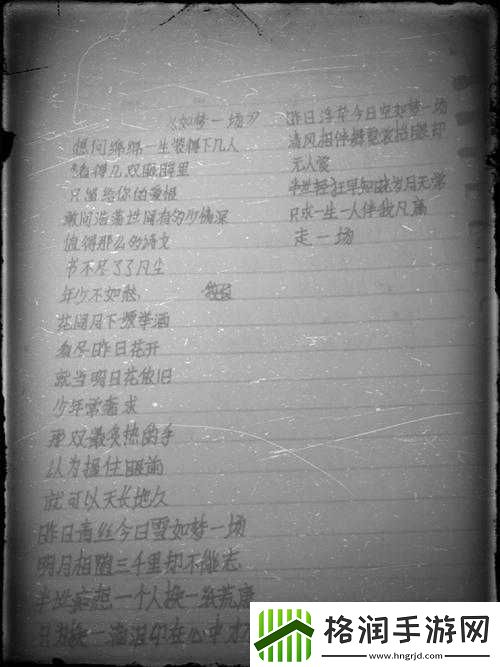 《如梦一场》
想问绵绵一生装得下几人
想看得几双眼眸里
只留给你的爱恨
敢问浩荡世间有多少情深
值得那么的诗文
书不尽了了凡尘
年少不如愁
花间月下频举酒
看尽昨日花开
就当明日花依旧
少年常奢求
那双最炙热的手
以为握住眼前
就可以天长地久
昨日青丝今日雪如梦一场
明月相随三千里却不能忘
半世妄想一个人换一纸荒唐
只为换一滴泪印在心中
昨日浮华今日空如梦一场
清风相伴
无人爱
半世轻狂早知晓岁月无常
只求一生一人伴我凡尘
走一场
格润手游网
www.hngrjd.com